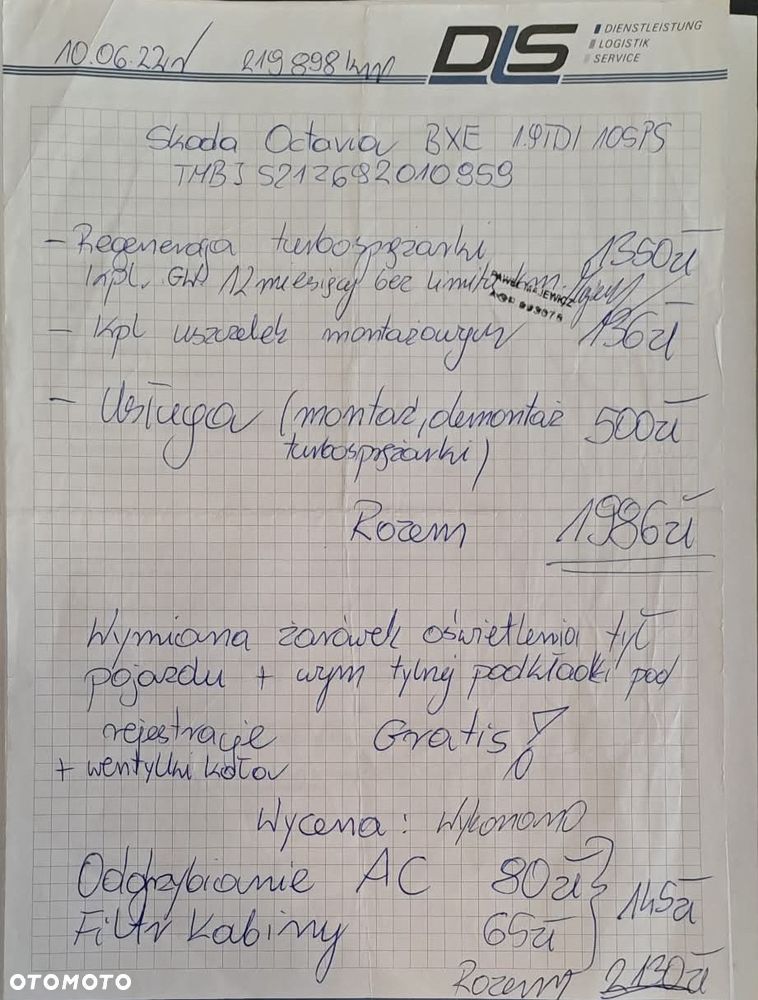 10.06.22r 219 898 km
DLS
DIENSTLEISTUNG
LOGISTIK
SERVICE
Skoda Octavia BXE 1.9TDI 105PS
TMBJS21Z692010959
- Regeneracja turbosprężarki 1350zł
1kpl. GW 12 miesięcy bez limitu km.
- Kpl uszczelek montażowych 136zł
- Usługa (montaż, demontaż 500zł
turbosprężarki)
Razem 1986zł
Wymiana żarówek oświetlenia tył
pojazdu + wym tylnej podkładki pod
rejestracje Gratis!
+ wentylki koła
Wycena: Wykonano
Odgrzybianie AC 80zł
145zł
Filtr kabiny 65zł
Razem 2130zł
OTOMOTO